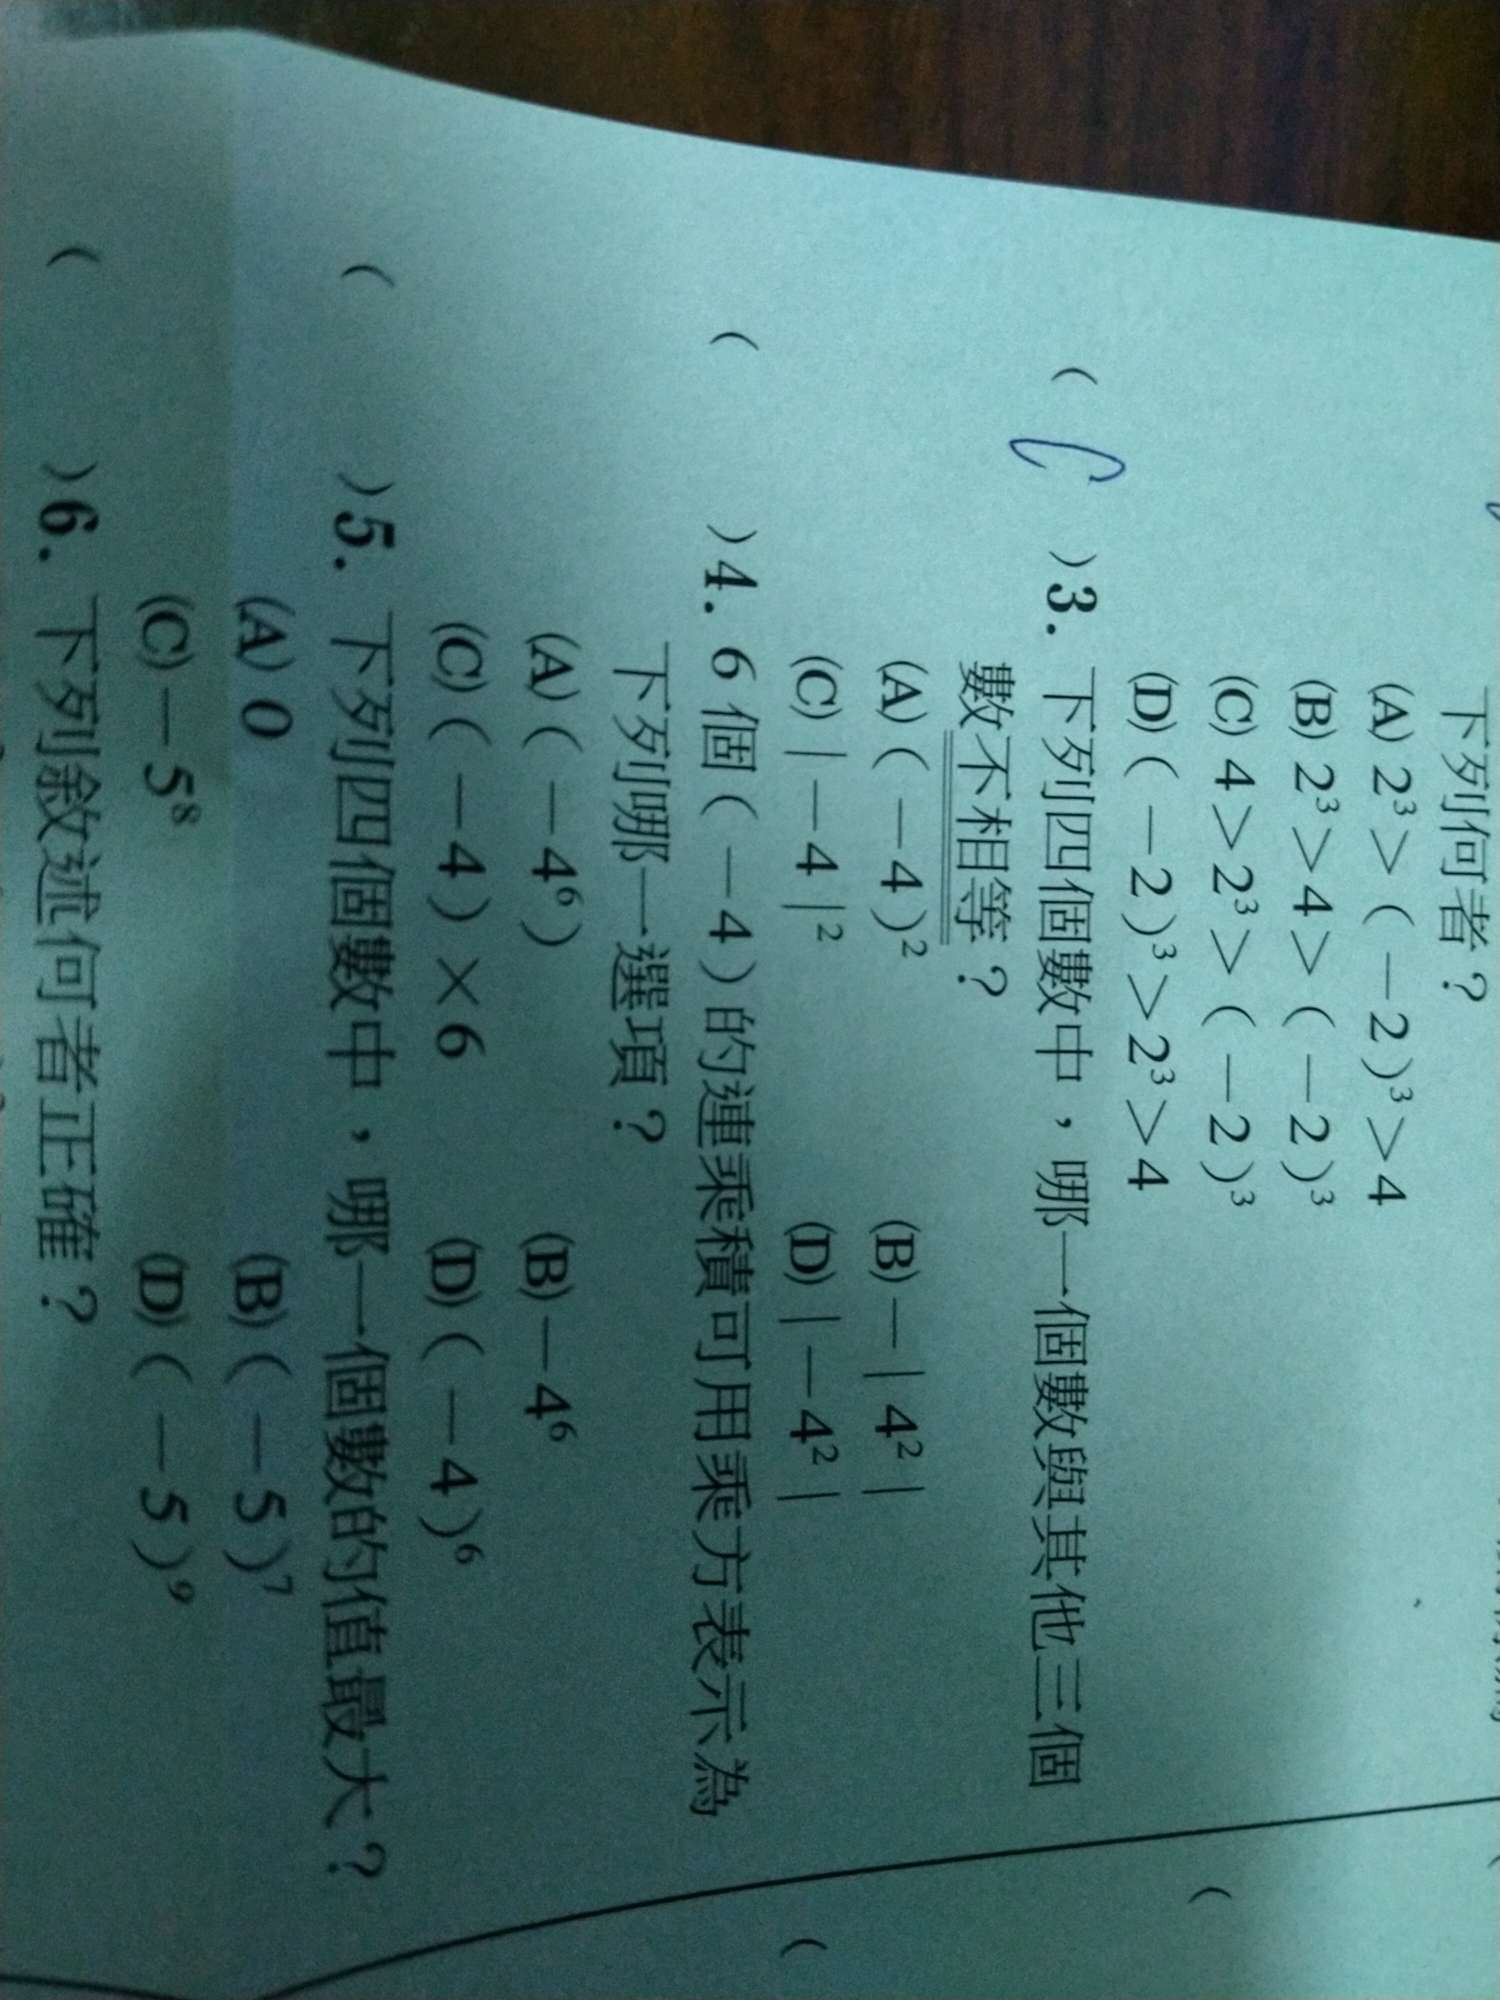 下列何者？
(A) 2³＞(－2)³＞4
(B) 2³＞4＞(－2)³
(C) 4＞2³＞(－2)³
(D) (－2)³＞2³＞4
( C )3. 下列四個數中，哪一個數與其他三個
數不相等？
(A) (－4)² (B)－|4²|
(C) |－4|² (D) |－4²|
( )4. 6 個(－4)的連乘積可用乘方表示為
下列哪一選項？
(A) (－4⁶) (B)－4⁶
(C) (－4)×6 (D) (－4)⁶
( )5. 下列四個數中，哪一個數的值最大？
(A) 0 (B) (－5)⁷
(C)－5⁸ (D) (－5)⁹
( )6. 下列敘述何者正確？